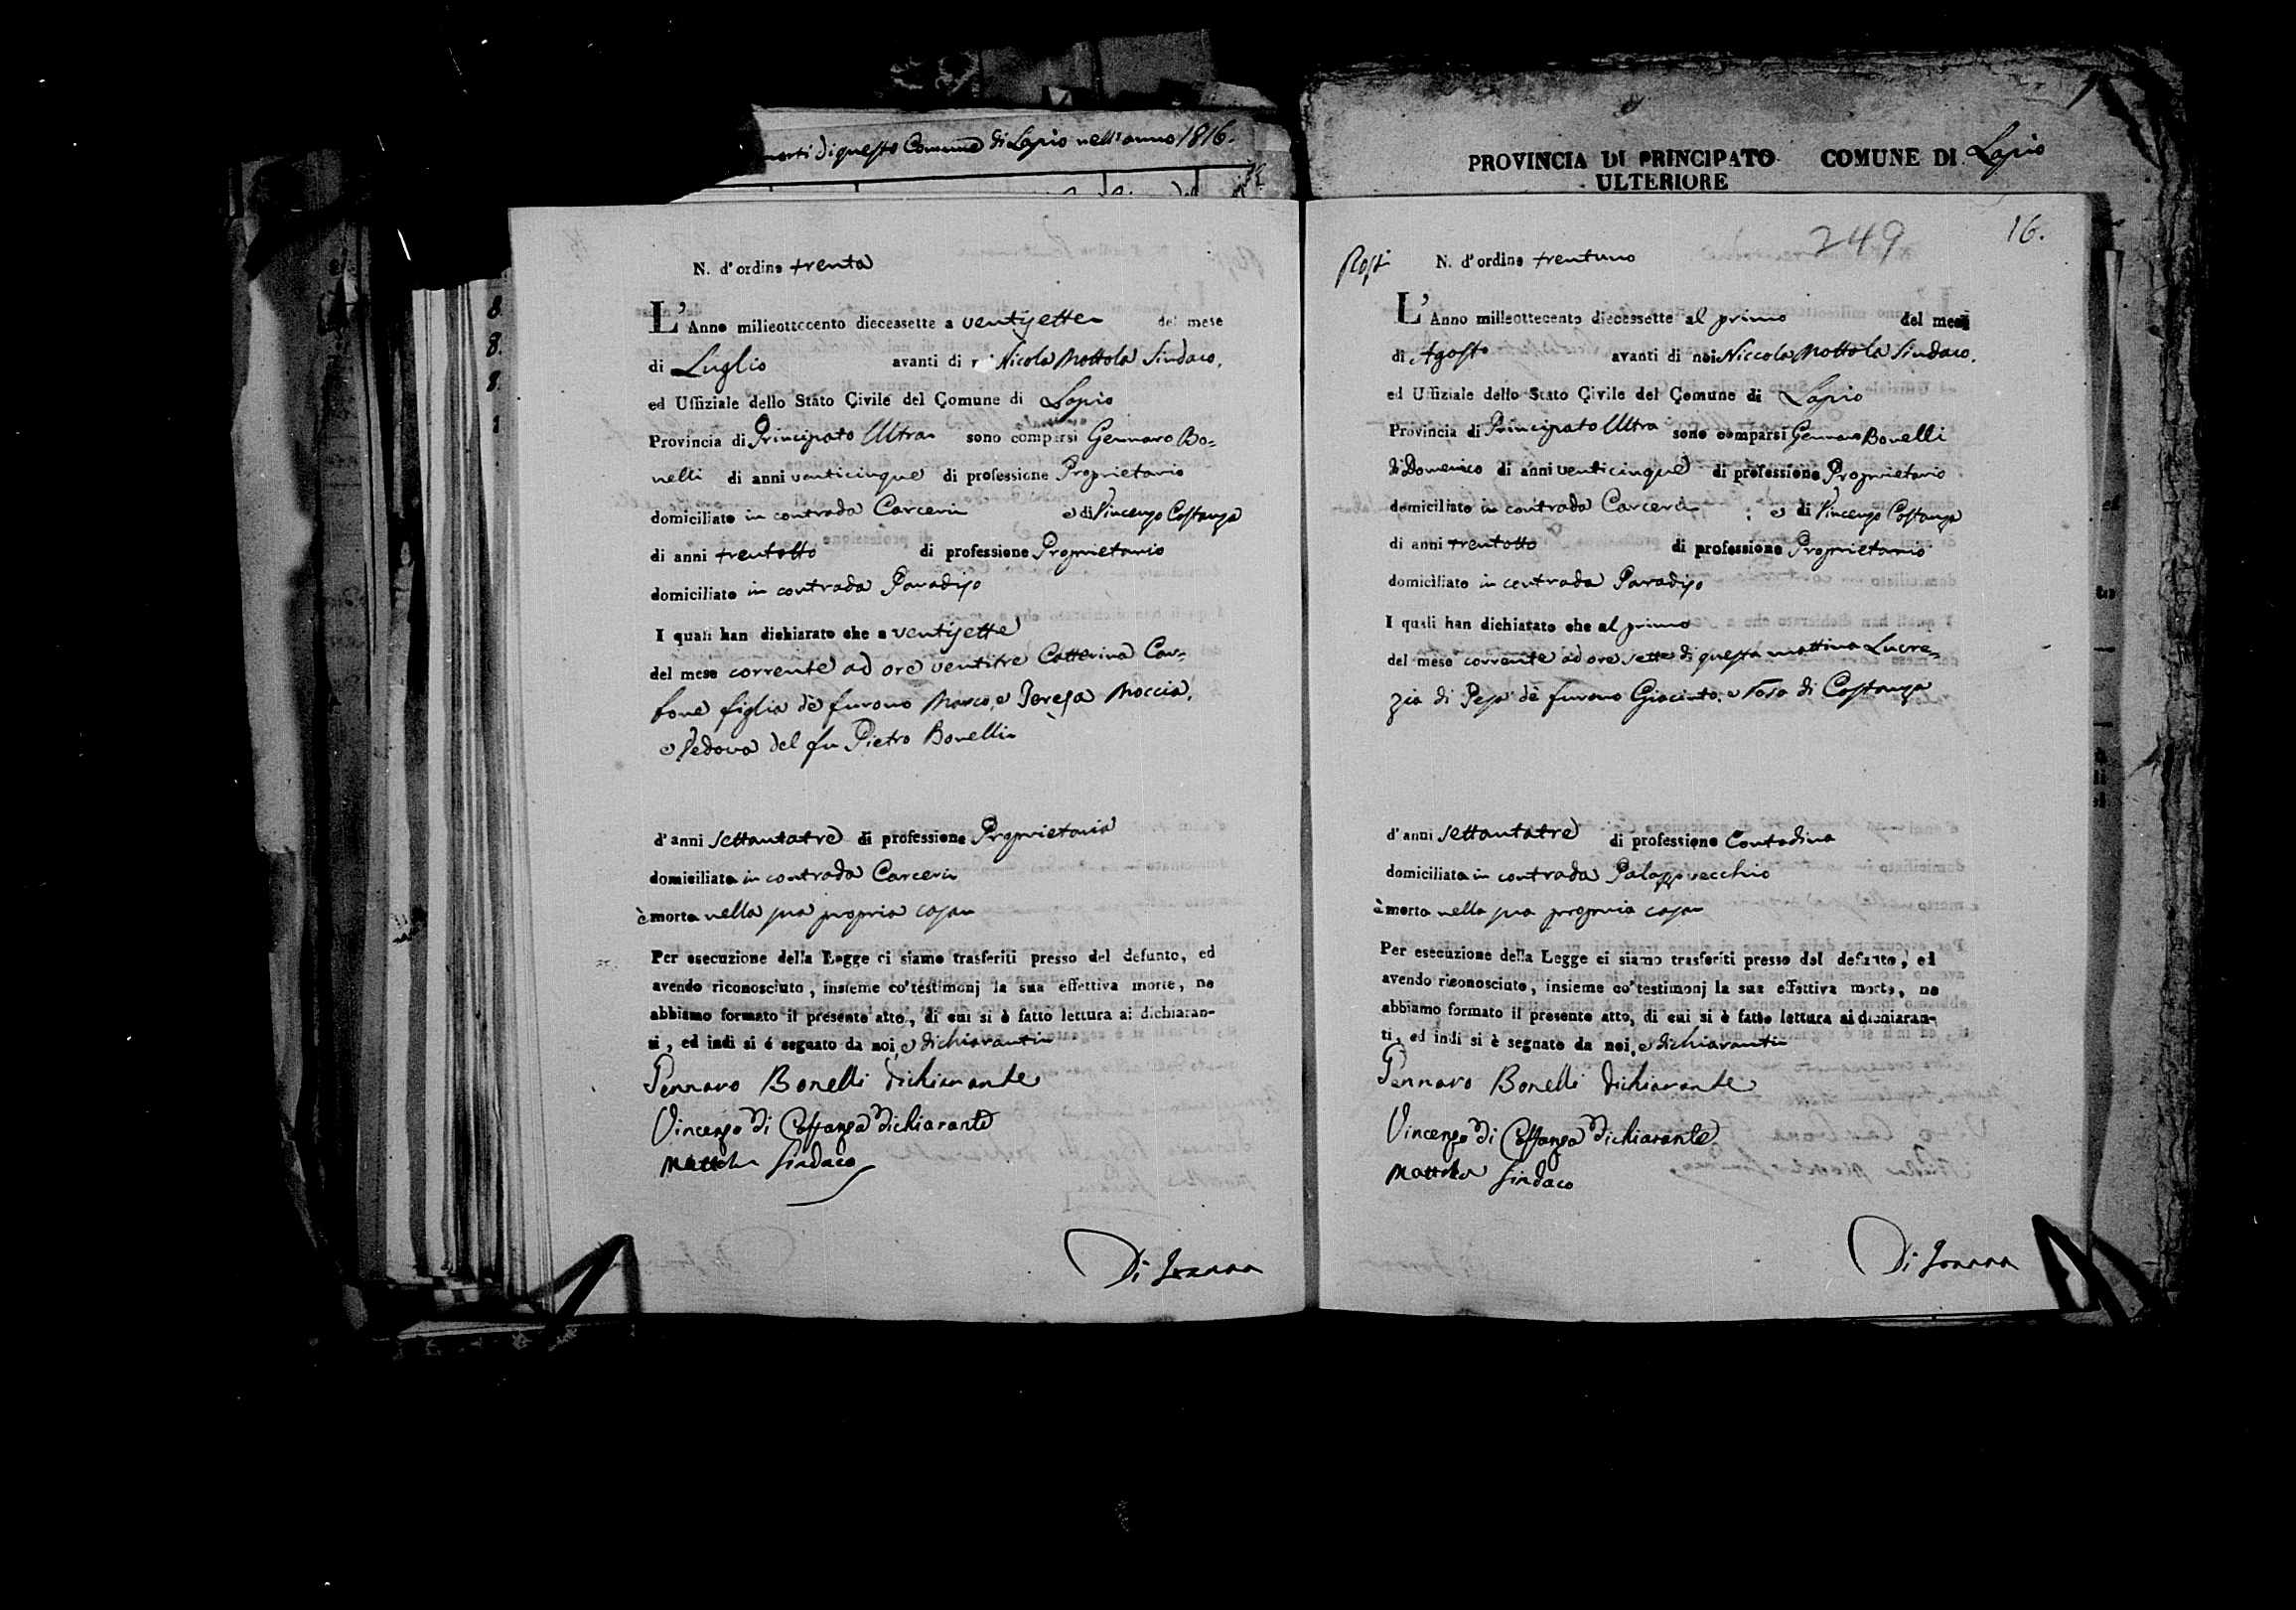 morti di questo Comune di Lapio nell'anno 1816.
N. d'ordine trenta
L'Anno milleottocento diecessette a ventisette del mese
di Luglio avanti di Nicola Mottola Sindaco,
ed Uffiziale dello Stato Civile del Comune di Lapio
Provincia di Principato Ultra sono comparsi Gennaro Bo=
nelli di anni venticinque di professione Proprietario
domiciliato in contrada Carceri e di Vincenzo Costanza
di anni trentotto di professione Proprietario
domiciliato in contrada Paradiso
I quali han dichiarato che a ventisette
del mese corrente ad ore ventitre Catterina Car=
bone figlia de furono Marco, e Teresa Moccia,
e Vedova del fu Pietro Bonelli
d'anni settantatre di professione Proprietaria
domiciliata in contrada Carceri
è morta nella sua propria casa
Per esecuzione della Legge ci siamo trasferiti presso del defunto, ed
avendo riconosciuto, insieme co'testimonj la sua effettiva morte, ne
abbiamo formato il presente atto, di cui si è fatto lettura ai dichiaran-
ti, ed indi si é segnato da noi, e dichiaranti
Gennaro Bonelli dichiarante
Vincenzo di Costanza dichiarante
Mottola Sindaco
PROVINCIA DI PRINCIPATO COMUNE DI Lapio
ULTERIORE
249 16.
N. d'ordine trentuno
L'Anno milleottocento diecessette al primo del mese
di Agosto avanti di noi Niccola Mottola Sindaco,
ed Uffiziale dello Stato Civile del Comune di Lapio
Provincia di Principato Ultra sono comparsi Gennaro Bonelli
di Domenico di anni venticinque di professione Proprietario
domiciliato in contrada Carceri ; e di Vincenzo Costanza
di anni trentotto di professione Proprietario
domiciliato in contrada Paradiso
I quali han dichiarato che al primo
del mese corrente ad ore sette di questa mattina Lucre=
zia di de furono Giacinto, e Rosa di Costanza
d'anni settantatre di professione Contadina
domiciliata in contrada Palazzovecchio
è morta nella sua propria casa
Per esecuzione della Legge ci siamo trasferiti presso del defunto, ed
avendo riconosciuto, insieme co'testimonj la sua effettiva morte, ne
abbiamo formato il presente atto, di cui si è fatto lettura ai dichiaran-
ti, ed indi si è segnato da noi, e dichiaranti
Gennaro Bonelli dichiarante
Vincenzo di Costanza dichiarante
Mottola Sindaco